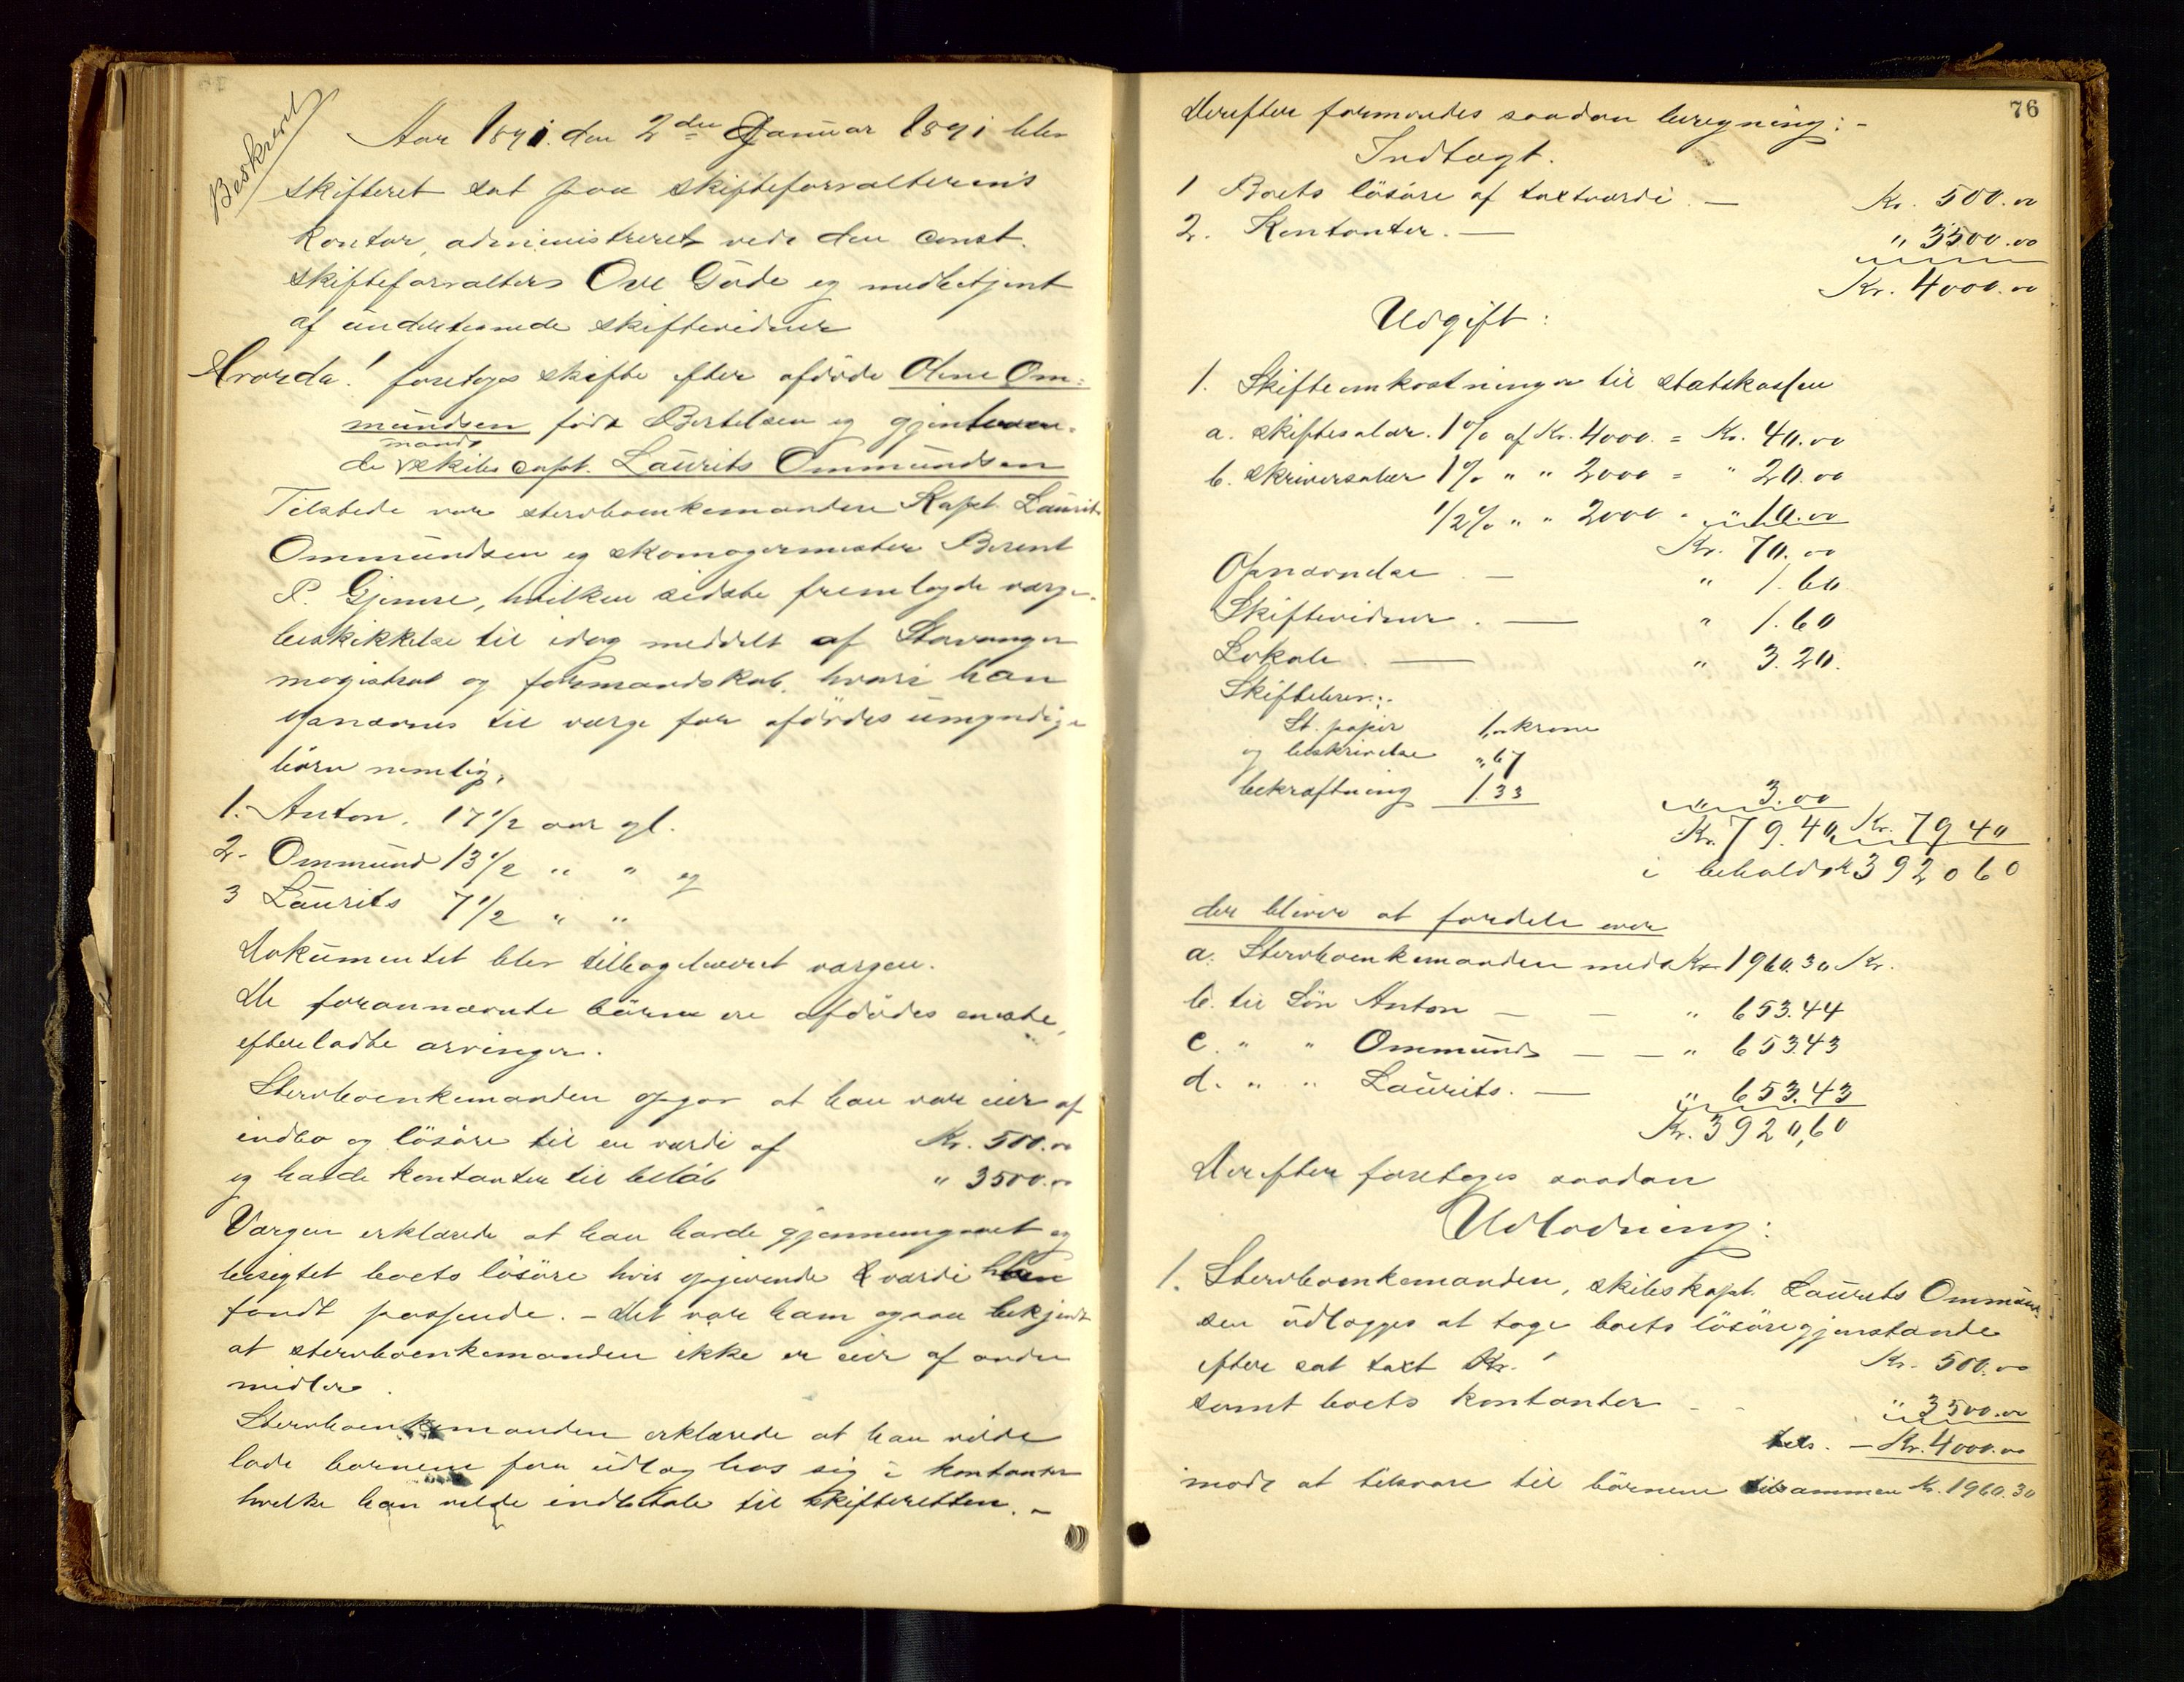 Beskrevet
Aar 1891. den 2den Januar 1891 blev
skifteret sat paa skifteforvalterens
kontor, administreret ved den const.
skifteforvalter Ove Gude og medbetjent
af undertegnede skiftevidner
Hvorda! foretoges skifte efter afdöde Oline Om-
mundsen födt Bertelsen og gjenleven-
mands
de skibscapt. Laurits Ommundsen
Tilstede var stervboenkemanden Kapt. Laurits
Ommundsen og skomagermester Berent
P. Gjemre, hvilken sidste fremlagde værge-
beskikkelse til idag meddelt af Stavanger
magistrat og formandskab, hvori han
opnævnes til værge for afdödes umyndige
börn nemlig,
1. Anton, 17 1/2 aar gl.
2. Ommund 13 1/2 " " og
3 Laurits 7 1/2 " "
Dokumentet blev tilbageleveret værgen.
De forannævnte börn er afdödes eneste,
efterladte arvinger.
Stervboenkemanden opgav at han var eier af
indbo og lösöre til en værdi af Kr. 500.00
og havde kontanter til belöb " 3500.00
Værgen erklærede at han havde gjennemgaaet og
besigtet boets lösöre hvis opgivende værdi han
fandt passende. - Det var ham ogsaa bekjendt
at stervboenkemanden ikke er eier af andre
midler.
Stervboenkemanden erklærede at han vilde
lade börnene faa udlæg hos sig i kontanter
hvilke han vilde indbetale til skifteretten. -
76
Derefter formeredes saadan beregning: -
Indtægt.
1 Boets lösöre af taxtværdi. — Kr. 500.00
2. Kontanter. — " 3500.00
Kr. 4000.00
Udgift:
1. Skifteomkostninger til statskassen
a. skiftesalær. 1% af Kr. 4000. = Kr. 40.00
b. skriversalær 1% " " 2000 = " 20.00
1/2% " " 2000 - " 10.00
Kr. 70.00
Opnævnelse. — " 1.60
Skiftevidner. — " 1.60
Lokale. — " 3.20.
Skiftebrev:
St. papir 1,- krone
og beskrivelse ",67
bekræftning 1.33
" 3.00
Kr. 79.40, Kr. 79 40
i behold Kr 3920 60
der bliver at fordele over
a. Stervboenkemanden med Kr 1960.30 Kr.
b. til Sön Anton — — " 653.44
c. " " Ommund — — " 653.43
d. " " Laurits. — " 653.43
Kr. 3920,60
Derefter foretoges saadan
Udlodning:
1. Stervboenkemanden, skibskapt. Laurits Ommund-
sen udlægges at tage boets lösöregjenstande
efter sat taxt Kr. Kr. 500.00
samt boets kontanter - - " 3500.00
tils. - Kr. 4000.00
mod at tilsvare til börnene tilsammen Kr. 1960.30